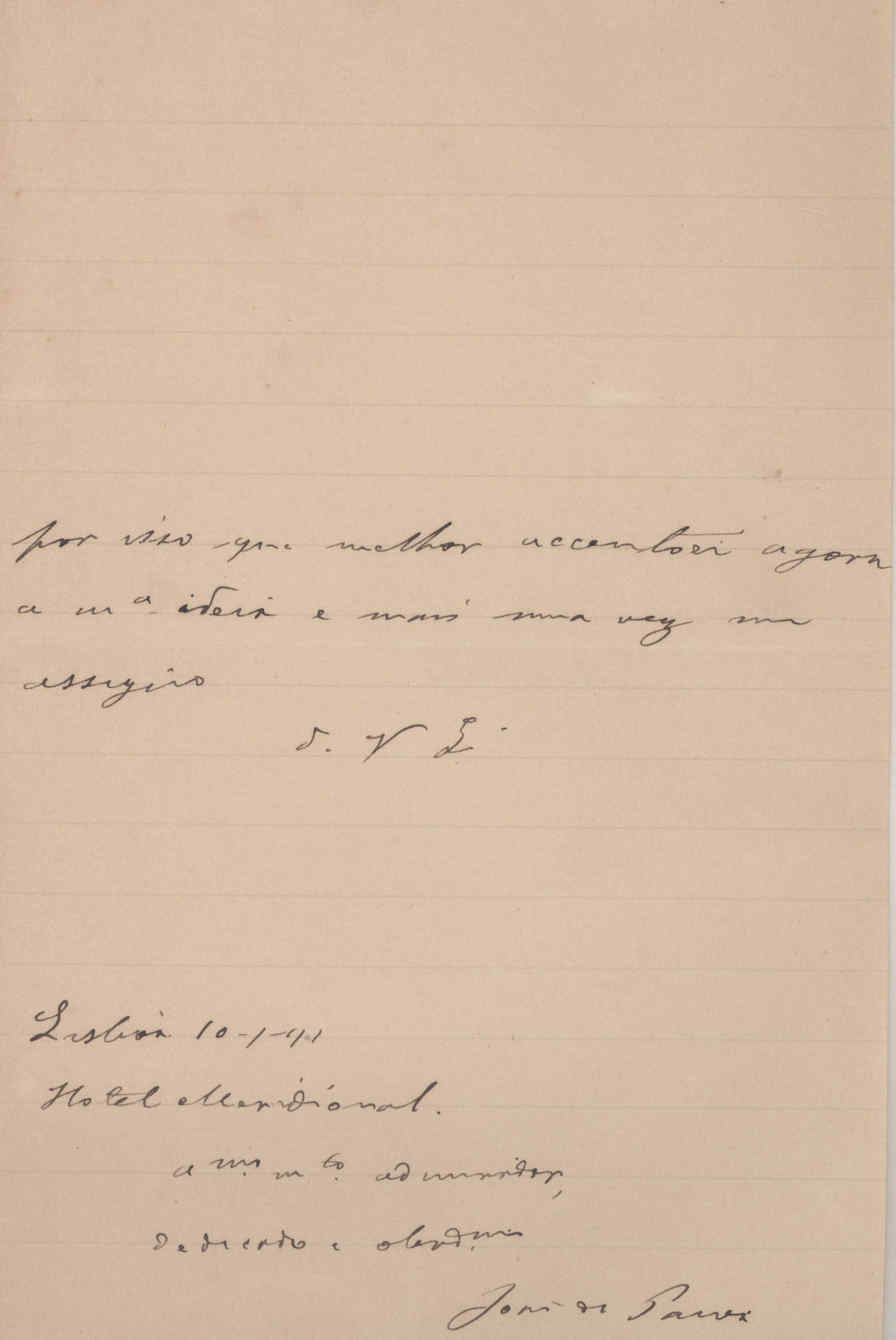 por isso que melhor accentuei agora
a m.ª ideia e mais uma vez me
assigno
d. V E.
Lisboa 10-1-91
Hotel Meridional.
am.º m.to admirador,
dedicado e obrgd.mo
José de